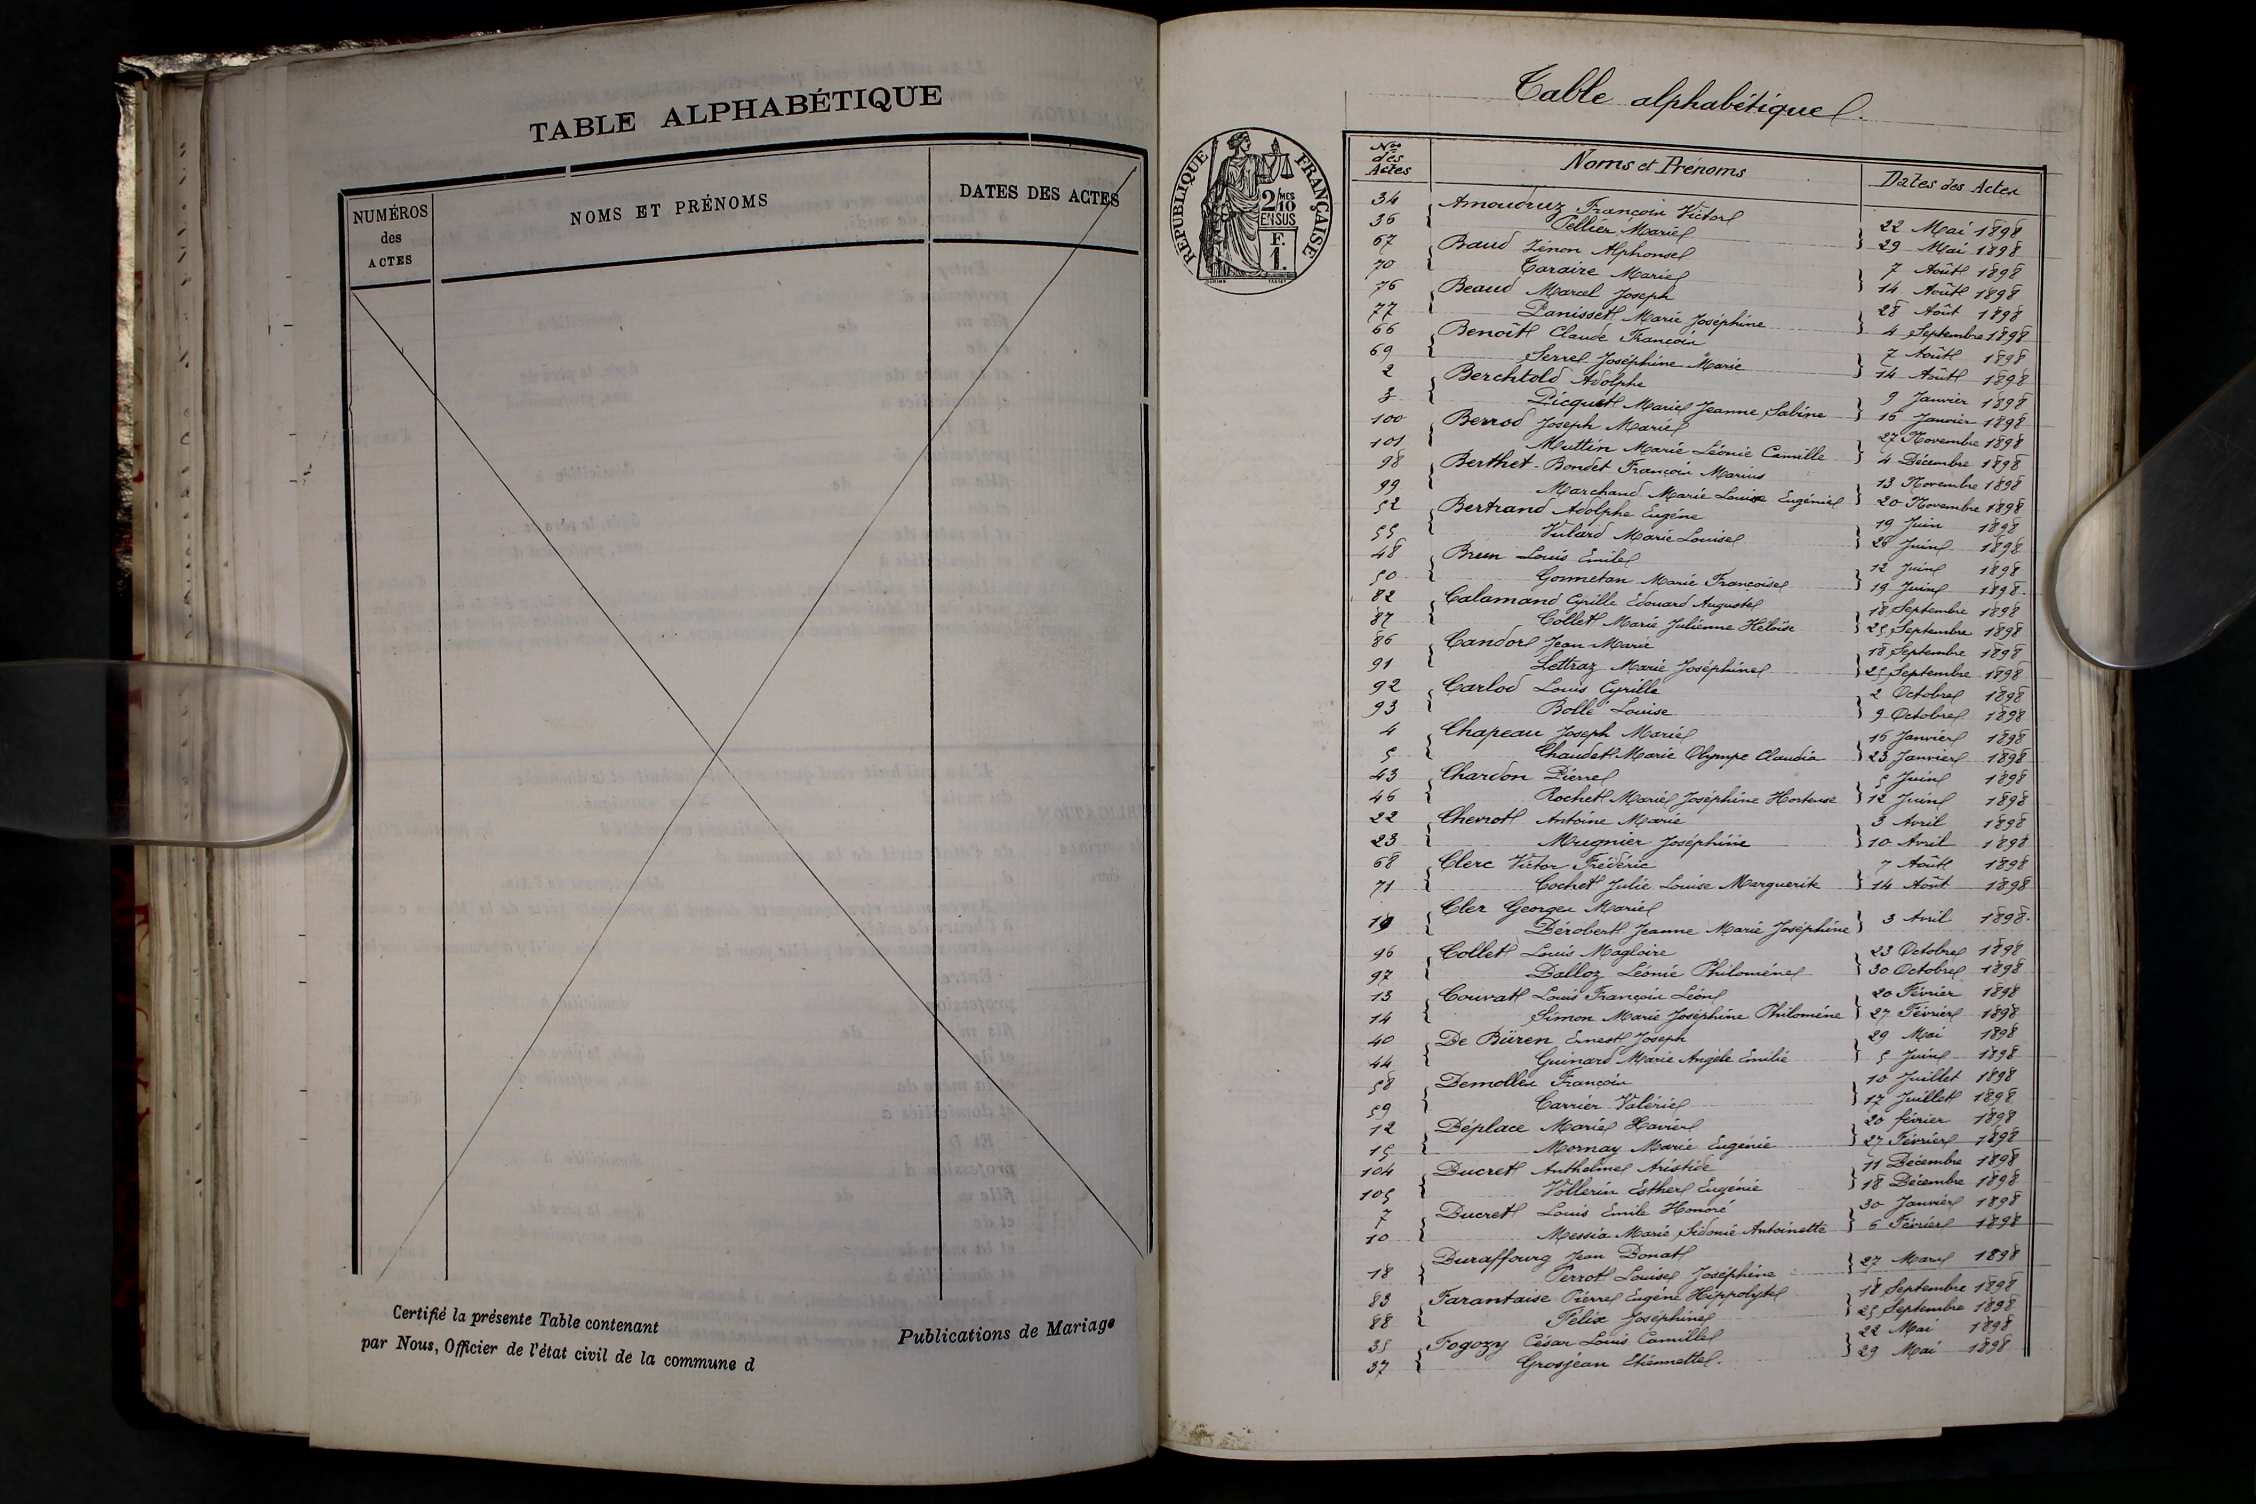 TABLE ALPHABÉTIQUE
NUMÉROS
des
ACTES
NOMS ET PRÉNOMS
DATES DES ACTES
Certifié la présente Table contenant
Publications de Mariage
par Nous, Officier de l'état civil de la commune d
Table alphabétique.
RÉPUBLIQUE FRANÇAISE
2/10
MES
EN SUS
F.
1.
Nos des Actes
Noms et Prénoms
Dates des Actes
34 Amoudruz François Victor 22 Mai 1898
36 Pellier Marie 29 Mai 1898
67 Baud Zénon Alphonse 7 Août 1898
70 Taraire Marie 14 Août 1898
76 Beaud Marcel Joseph 28 Août 1898
77 Panisset Marie Joséphine 4 Septembre 1898
66 Benoît Claude François 7 Août 1898
69 Serres Joséphine Marie 14 Août 1898
2 Berchtold Adolphe 9 Janvier 1898
3 Picquet Marie Jeanne Sabine 16 Janvier 1898
100 Berrod Joseph Marie 27 Novembre 1898
101 Muttin Marie Léonie Camille 4 Décembre 1898
98 Berthet-Bondet François Marius 13 Novembre 1898
99 Marchand Marie Louise Eugénie 20 Novembre 1898
52 Bertrand Adolphe Eugène 19 Juin 1898
55 Vulard Marie Louise 26 Juin 1898
48 Brun Louis Emile 12 Juin 1898
50 Gonnetan Marie Françoise 19 Juin 1898.
82 Calamand Cyrille Edouard Auguste 18 Septembre 1898
87 Collet Marie Julienne Héloïse 25 Septembre 1898
86 Candor Jean Marie 18 Septembre 1898
91 Lettraz Marie Joséphine 25 Septembre 1898
92 Carlod Louis Cyrille 2 Octobre 1898
93 Bollé Louise 9 Octobre 1898
4 Chapeau Joseph Marie 16 Janvier 1898
5 Chaudet Marie Olympe Claudia 23 Janvier 1898
43 Chardon Pierre 5 Juin 1898
46 Rochet Marie Joséphine Hortense 12 Juin 1898
22 Chevrot Antoine Marie 3 Avril 1898
23 Mugnier Joséphine 10 Avril 1898
68 Clerc Victor Frédéric 7 Août 1898
71 Cochet Julie Louise Marguerite 14 Août 1898
Cler Georges Marie
19 Dérobert Jeanne Marie Joséphine 3 Avril 1898.
96 Collet Louis Magloire 23 Octobre 1898
97 Dalloz Léonie Philomène 30 Octobre 1898
13 Couvat Louis François Léon 20 Février 1898
14 Simon Marie Joséphine Philomène 27 Février 1898
40 De Büren Ernest Joseph 29 Mai 1898
44 Guinard Marie Angèle Emilie 5 Juin 1898
58 Demolles François 10 Juillet 1898
59 Carrier Valérie 17 Juillet 1898
12 Déplace Marie Xavier 20 février 1898
15 Mornay Marie Eugénie 27 Février 1898
104 Ducret Anthelme Aristide 11 Décembre 1898
105 Vollerin Esther Eugénie 18 Décembre 1898
7 Ducret Louis Emile Honoré 30 Janvier 1898
10 Messia Marie Sidonie Antoinette 6 Février 1898
Duraffourg Jean Donat
18 Perrot Louise Joséphine 27 Mars 1898
83 Farantaise Pierre Eugène Hippolyte 18 Septembre 1898
88 Félix Joséphine 25 Septembre 1898
35 Fogozy César Louis Camille 22 Mai 1898
37 Grosjean Etiennette. 29 Mai 1898